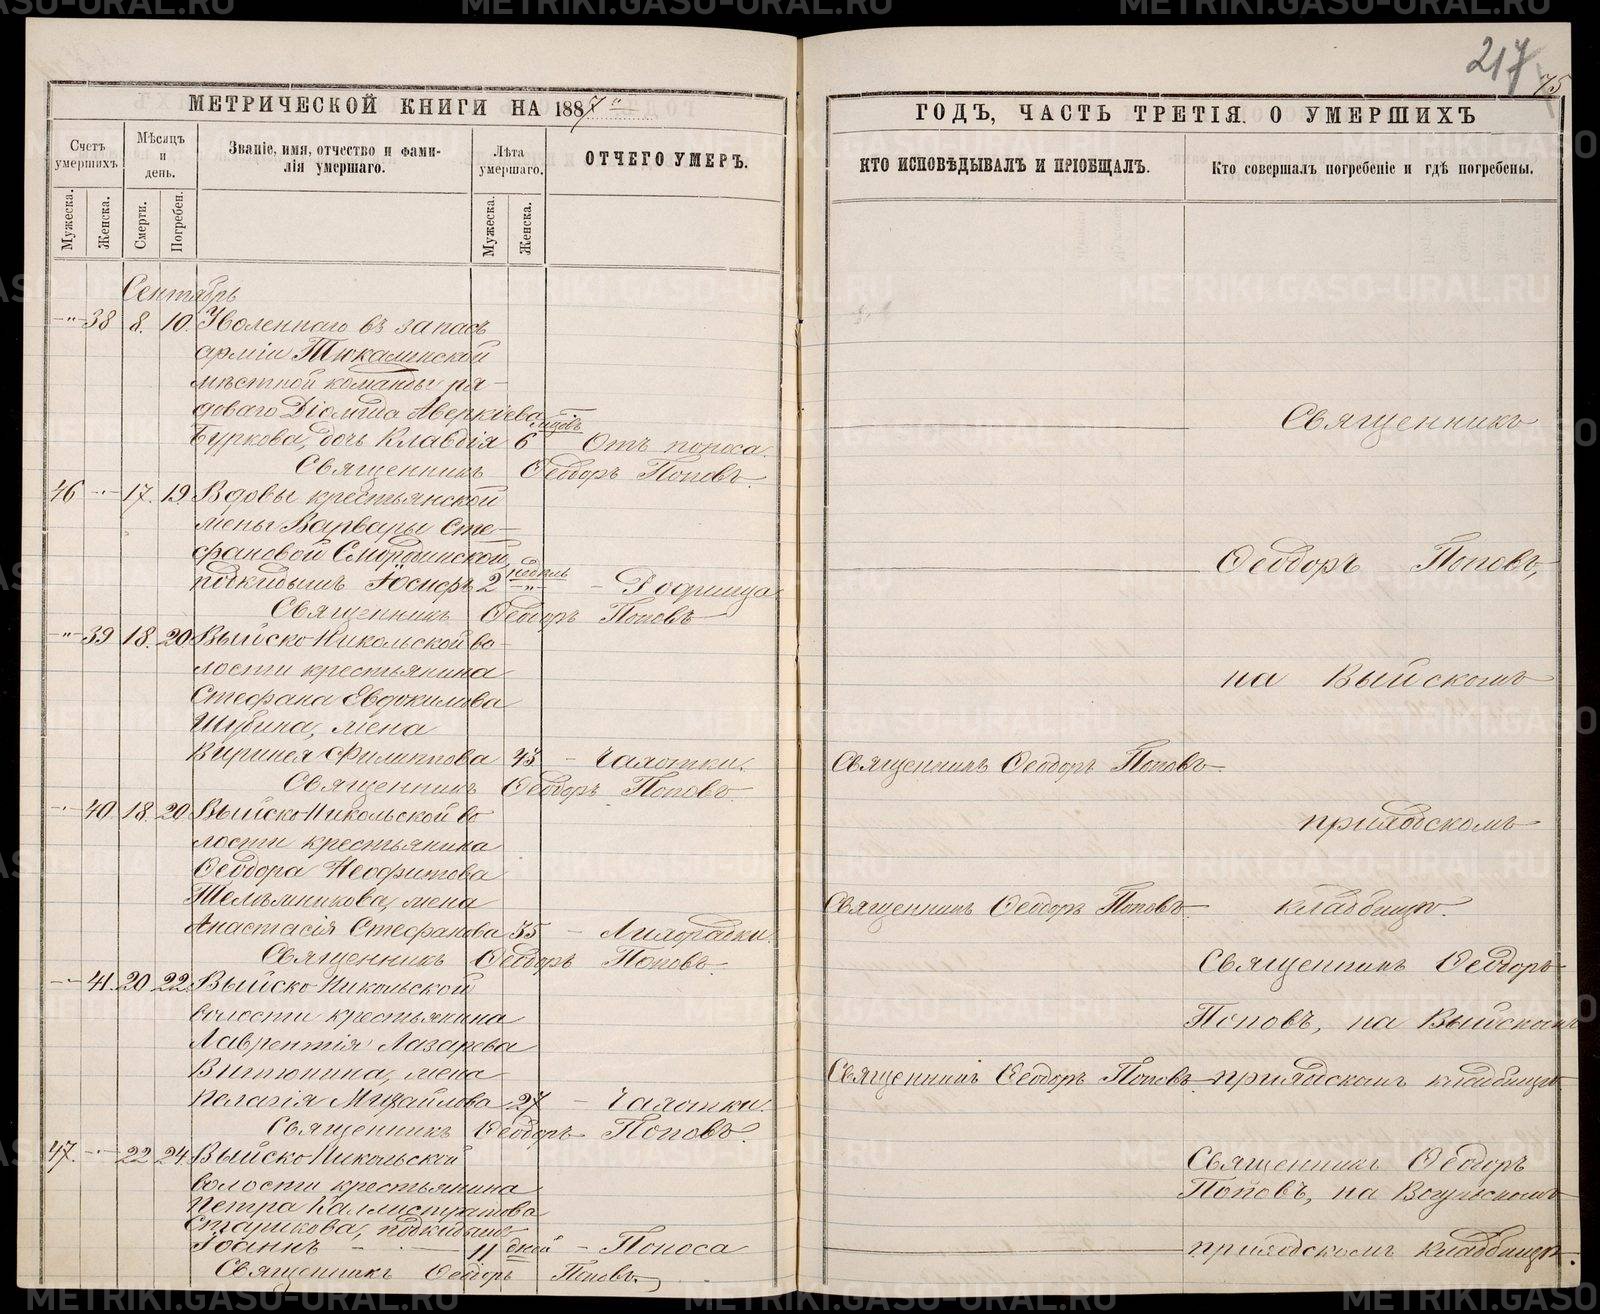 217
75
МЕТРИЧЕСКОЙ КНИГИ НА 1887
ГОДЪ, ЧАСТЬ ТРЕТІЯ. О УМЕРШИХЪ
Счетъ умершихъ.
Мѣсяцъ и день.
Званіе, имя, отчество и фами-
лія умершаго.
Лѣта умершаго.
ОТЧЕГО УМЕРЪ.
КТО ИСПОВѢДЫВАЛЪ И ПРІОБЩАЛЪ.
Кто совершалъ погребеніе и гдѣ погребены.
Мужеска.
Женска.
Смерти.
Погребен.
Мужеска.
Женска.
Сентябрь
38 8. 10. Уволеннаго въ запасъ
арміи Тюкалинской
мѣстной команды ря-
доваго Діомида Аверкіева
Буркова, дочь Клавдія 6 Отъ поноса.
Священникъ Ѳеодоръ Поповъ.
46 17. 19. Вдовы крестьянской
жены Варвары Сте-
фановой
подкидышъ Іосифъ 2 недѣль Родимца
Священникъ Ѳеодоръ Поповъ
39 18. 20 Выйско-Никольской во-
лости крестьянина
Стефана Евдокимова
Шубина, жена
Виринея Филиппова 43 Чахотки.
Священникъ Ѳеодоръ Поповъ
40. 18. 20 Выйско-Никольской во
лости крестьянина
Ѳеодора Неофитова
жена
Анастасія Стефанова 35 Лихорадки.
Священникъ Ѳеодоръ Поповъ.
41. 20 22. Выйско-Никольской
волости крестьянина
Лаврентія Лазарева
жена
Пелагія Михайлова 27 Чахотки.
Священникъ Ѳеодоръ Поповъ.
47. 22 24. Выйско-Никольской
волости крестьянина
Петра Каллистратова
подкидышъ
Іоаннъ 11 дней Поноса
Священникъ Ѳеодоръ Поповъ.
Священникъ
Ѳеодоръ Поповъ,
на Выйскомъ
Священникъ Ѳеодоръ Поповъ
приходскомъ
Священникъ Ѳеодоръ Поповъ
кладбищѣ.
Священникъ Ѳеодоръ
Поповъ, на Выйскомъ
Священникъ Ѳеодоръ Поповъ
приходскомъ кладбищѣ
Священникъ Ѳеодоръ
Поповъ, на Вогульскомъ
приходскомъ кладбищѣ.
METRIKI.GASO-URAL.RU